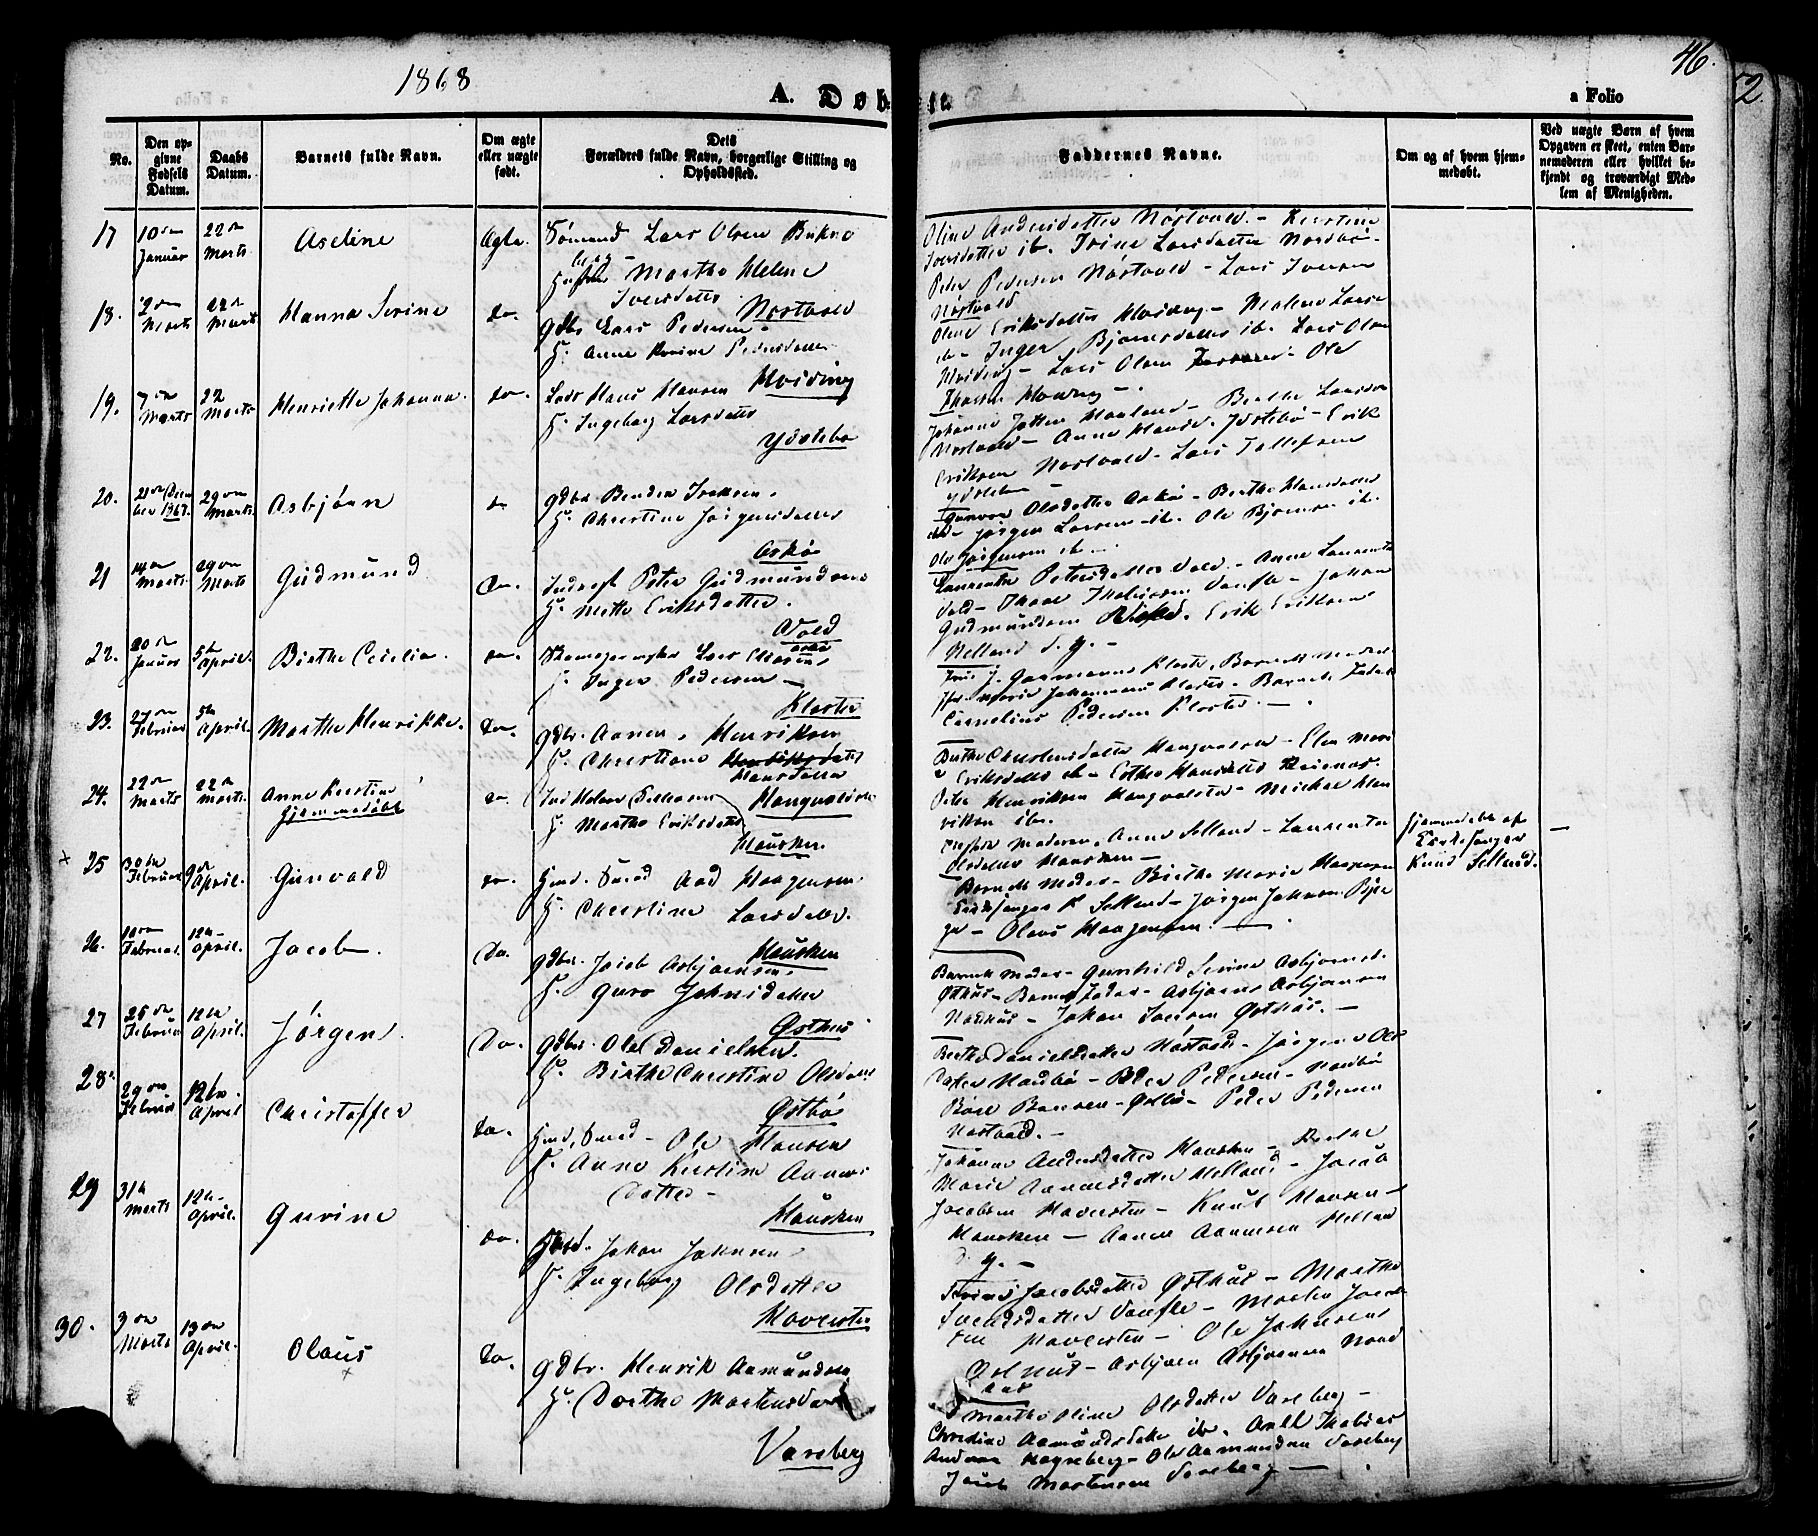 1868
46.
52
A. Døbte.
a Folio
No.
Den opgivne Fødsels Datum.
Daabs Datum.
Barnets fulde Navn.
Om ægte eller uægte født.
Dets Forældres fulde Navn, borgerlige Stilling og Opholdssted.
Faddernes Navne.
Om og af hvem hjemmedøbt.
Ved uægte Børn af hvem Opgaven er skeet, enten Barnemoderen eller hvilket bekjendt og troværdigt Medlem af Menigheden.
17 10de Januar 22de Marts Aseline Ægte. Sømand Lars Olsen Bukne
berg
Martha Helene
Iversdatter
Nostvold
Oline Andersdatter Nøstvold - Kerstine
Iversdatter ib. Trine Larsdatter Nordbø.
Peder Pedersen Nøstvold - Lars Iversen
Nøstvold
18. 2den Marts 22de Marts Hanna Serine do. Gdbr Lars Pedersen
H. Anne Pedersdatter
Hviding
Oline Eriksdatter Hviding - Malene Lars
do - Inger Bjørnsdatter ib. Lars Olsen
Hviding - Lars Olsen - Ole
Hviding -.
19. 7de Marts 22 Marts Henriette Johanna do. Hans Hansen
H. Ingeborg Larsdatter
Ydstebø
Johanne Haaland - Berthe Larsdr
Nostvold - Anne Hansd. Ydstebø - Erik
Eriksen Nostvold - Lars Tollefsen
Ydstebø -
20. 21de Decem ber 1867. 29de Marts Asbjørn do Gdbr Bendix Iversen.
H. Christine Jørgensdatter
Askø
Gunvor Olsdatter Askø - Berthe Hansdatter
do - Jørgen Larsen ib. Ole Bjørnsen ib.
Ole Jørgensen ib -
21 14de Marts. 29de Marts Gudmund. Do. Inderst Peter Gudmundsen
H. Mette Eriksdatter.
Vold
Laurentse Petersdatter Vold - Anne Laurentse
Vold - Thore Thobiasen - Johan
Gudmundsen. Erik Eriksen
Helland d. y. -
22. 20de Januar 5te April. Birthe Cecilia. do. Lars Clasen
H. Inger Pedersen -
Kloster
J. Garmanns Kloster. Barnets Moder
Marie Johannsens Kloster - Barnets Fader
Cornelius Pedersen Kloster. -.
23. 27de Februar 5te April. Marthe Henrikke. Do. Gdbr. Aanen Henriksen
H. Christiane Hansdatter
Birthe Christensdatter - Elen Mari
Eriksdatter ib - Esther Hansdatter
Peter Henriksen - Michael Hen
riksen ib.
24. 22de Marts 22de Marts. Anne Kerstine
Hjemmedøbt
do. Ind. Helau Tollefsen
H. Martha Eriksdatter
Hausken.
Moderen, Anne Selland - Laurentse
Olsdatter Hausken -
Hjemmedøbt af
Kirkesanger
Knud Selland. -
25 3die Februar 9de April. Gunvald do. Hmd. Smed Aad Haagensen
H. Christine Larsdatter.
Hausken
Barnets Moder - Birthe Marie Haagensen
Kirkesanger K Selland - Jørgen Johnsen Bjer
ga - Olaus Haagensen. -
26. 10de Februar. 12te April. Jacob. Do. Gdbr. Jacob Asbjørnsen.
H. Guro Johnsdatter
Østhus
Barnets Moder - Gunhild Serine Asbjørnsd.
Østhus - Barnets Fader - Asbjørn Asbjørnsen
Nordhus - Johan Iversen Østhus. -
27 25de Februar 12te April. Jørgen. Do. Gdbr. Ole Danielsen.
H. Birthe Christine Olsdatter
Østbø
Berthe Danielsdatter Nøstvold - Jørgen Ols
Datter Haubø - Peder Pedersen - Haubø
Baardsen - Østbø - Peder Pedersen
Nostvold. -
28. 29de Februar 12te April Christoffer Do. Hmd, Smed - Ole Hansen
H. Anne Kerstine Aanens
Datter -
Hausken
Johanne Andersdatter Hausken - Berthe
Marie Aanensdatter Helland - Jacob
Jacobsen Haversten - Knut Hansen -
Hausken - Aanen Aanensen Helland
d. y. -
29 31te Marts 12te April. Gurine do. Gdbr. Johan Johnsen
H. Ingeborg Olsdatter
Haversten
Jacobsdatter Østhus - Marthe
Svendsdatter - Marthe Jacob
sen Haversten - Ole Johnsen
Østhus - Asbjørn Asbjørnsen Nord
hus
30. 3de Marts 13de April. Olaus Do. Gdbr. Henrik Aamundsen
H. Dorthe Mortensdatter
Vareberg
Marthe Oline Olsdatter Vareberg -
Christine Aamundsdatter ib. Thobias
Andersen Hegreberg - Ole Aamundsen Vareberg
Jacob Mortensen Vareberg -